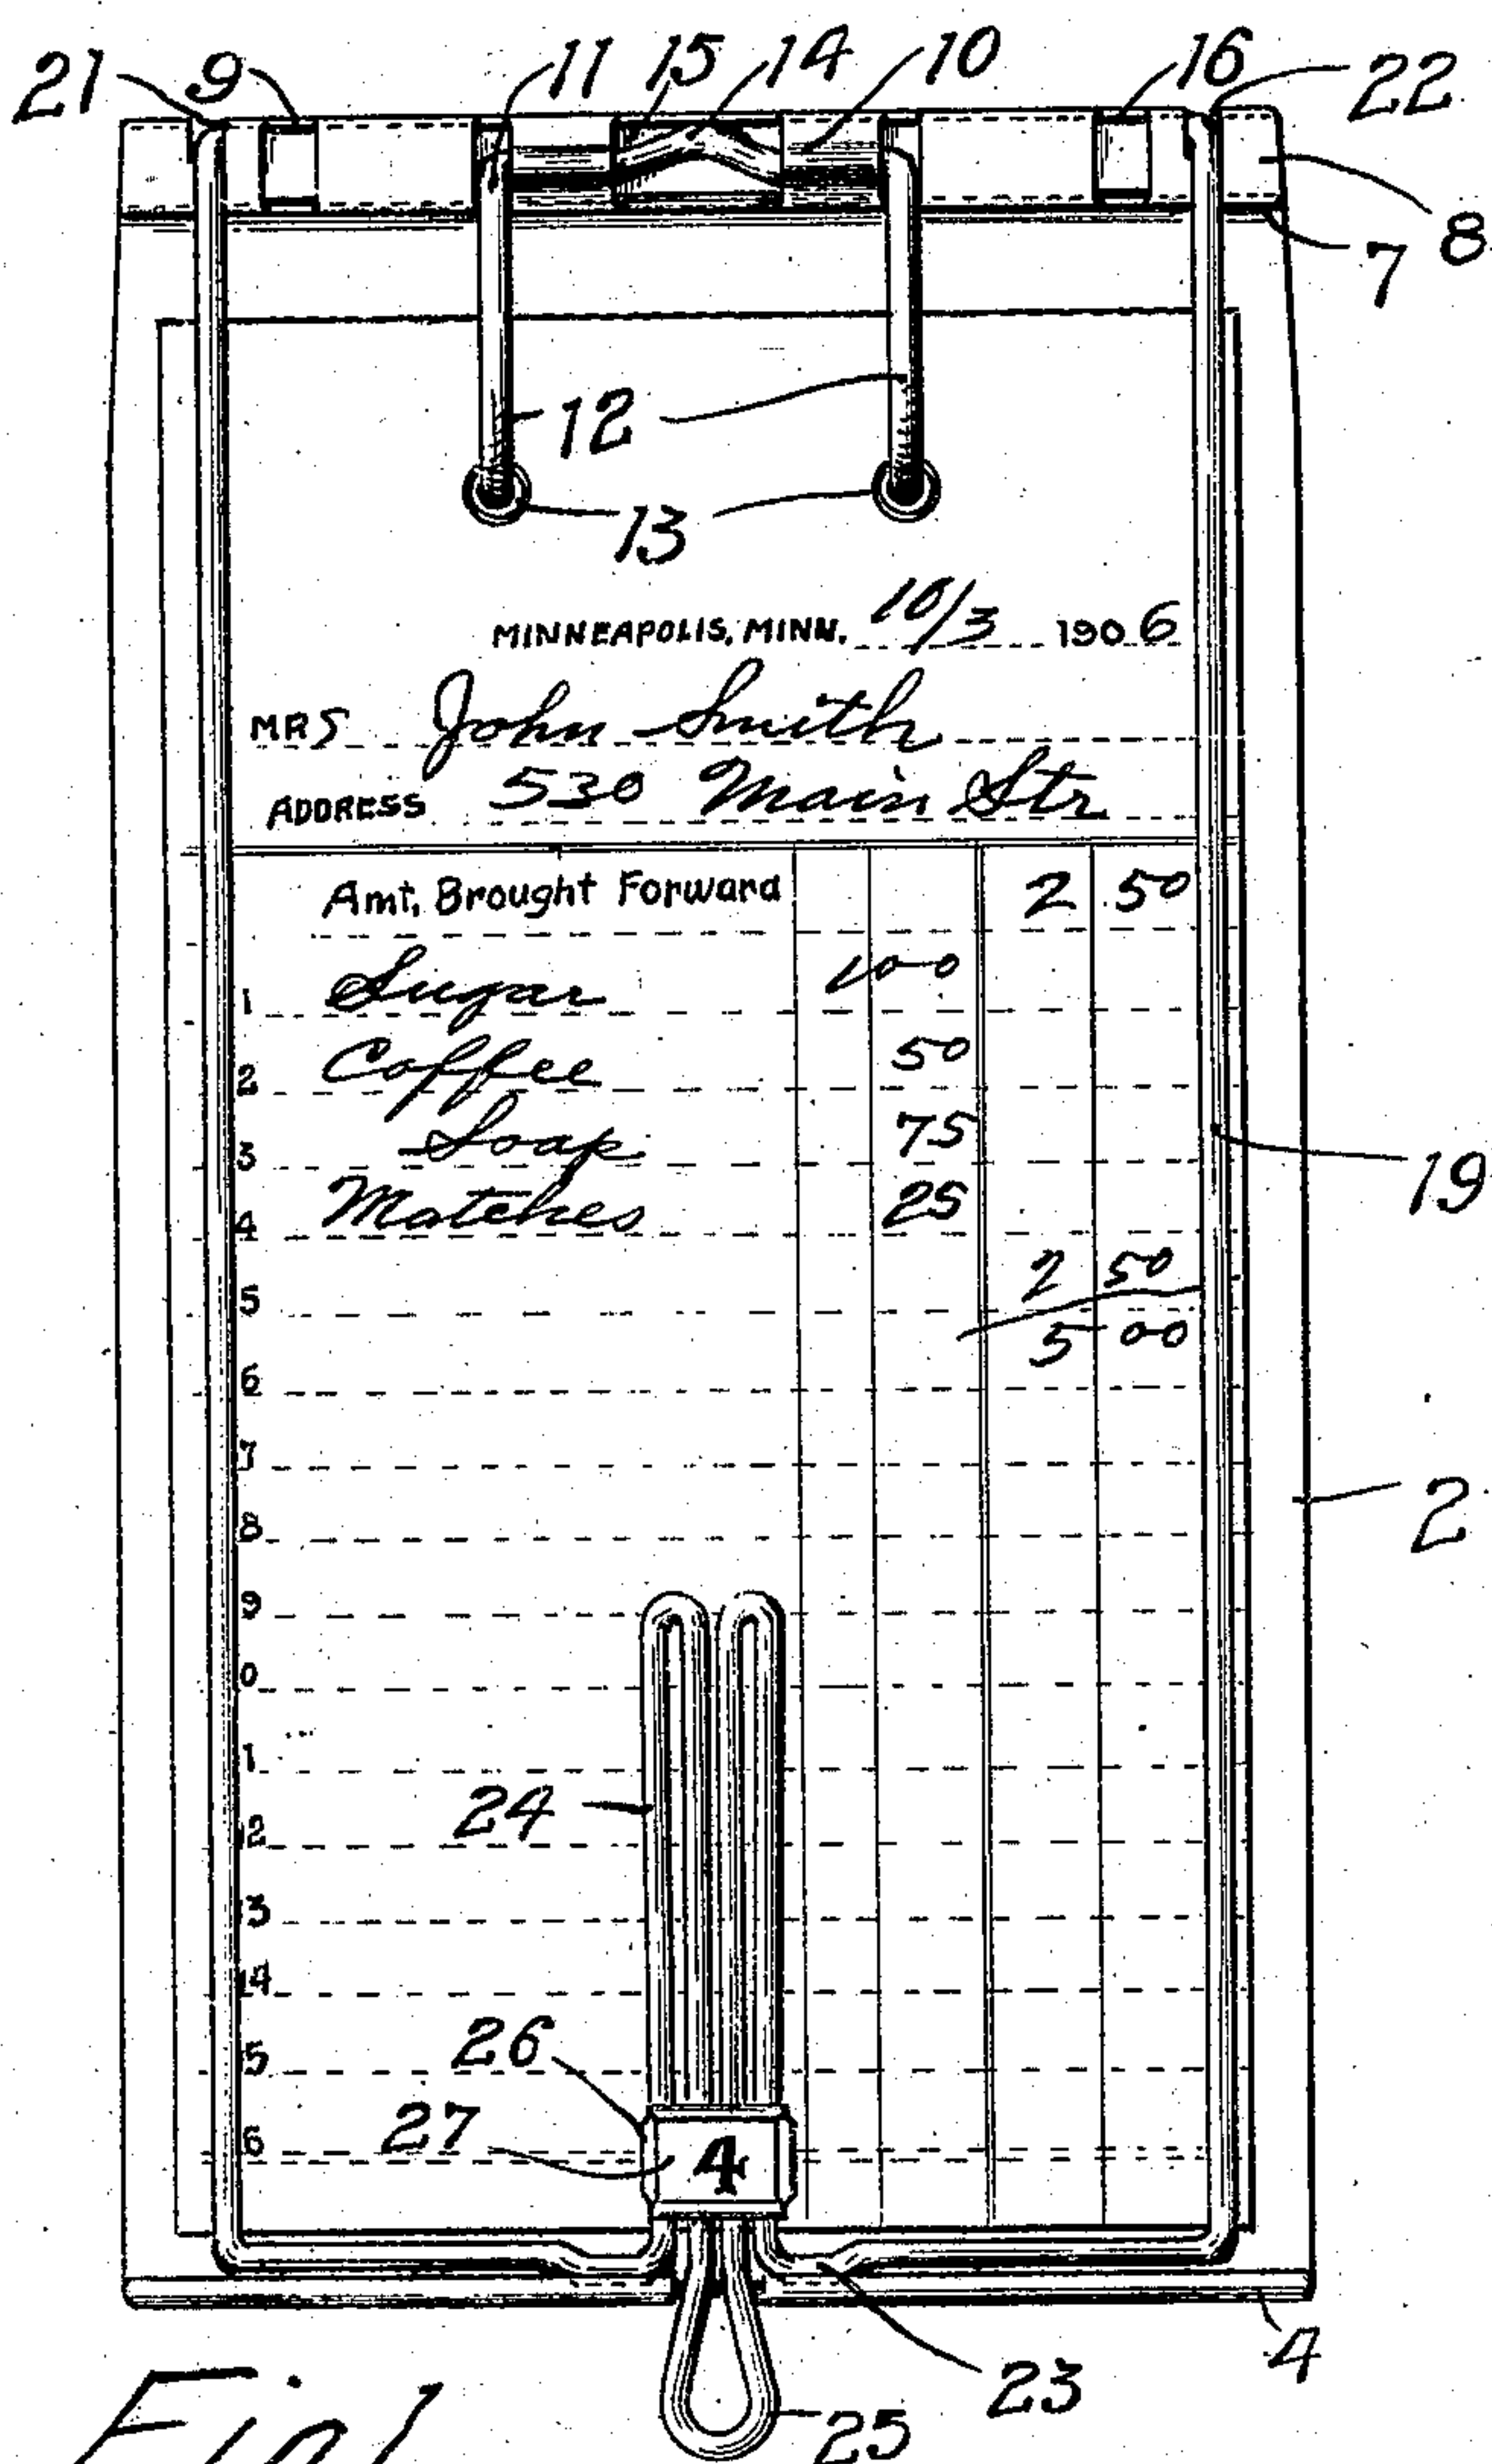 21 9 11 15 14 10 16 22
8
7
12
13
MINNEAPOLIS, MINN. 10/3 1906
MRS John Smith
ADDRESS 530 Main Str
Amt. Brought Forward 2 50
1 Sugar 100
2 Coffee 50
3 Soap 75
4 Matches 25
19
5 2 50
5 00
6
7
8
2
9
0
1
24
2
3
14
26
5
27
6
4
4
23
25
Fig 1